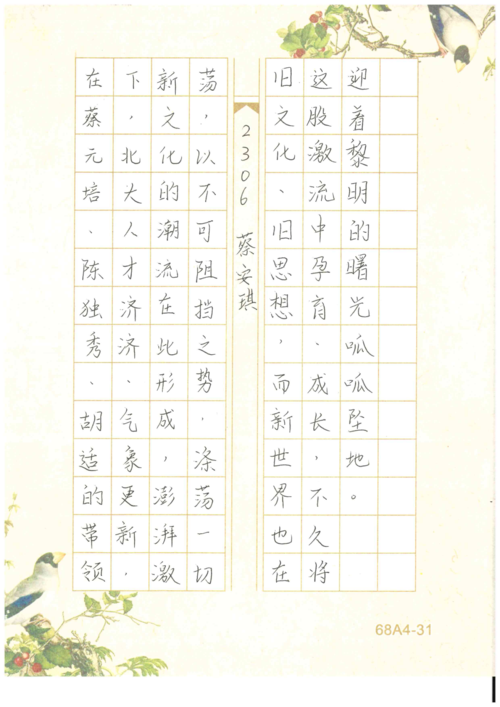 在蔡元培、陈独秀、胡适的带领
下，北大人才济济、气象更新，
新文化的潮流在此形成，澎湃激
荡，以不可阻挡之势，涤荡一切
2306 蔡安琪
旧文化、旧思想，而新世界也在
这股激流中孕育、成长，不久将
迎着黎明的曙光呱呱坠地。
68A4-31